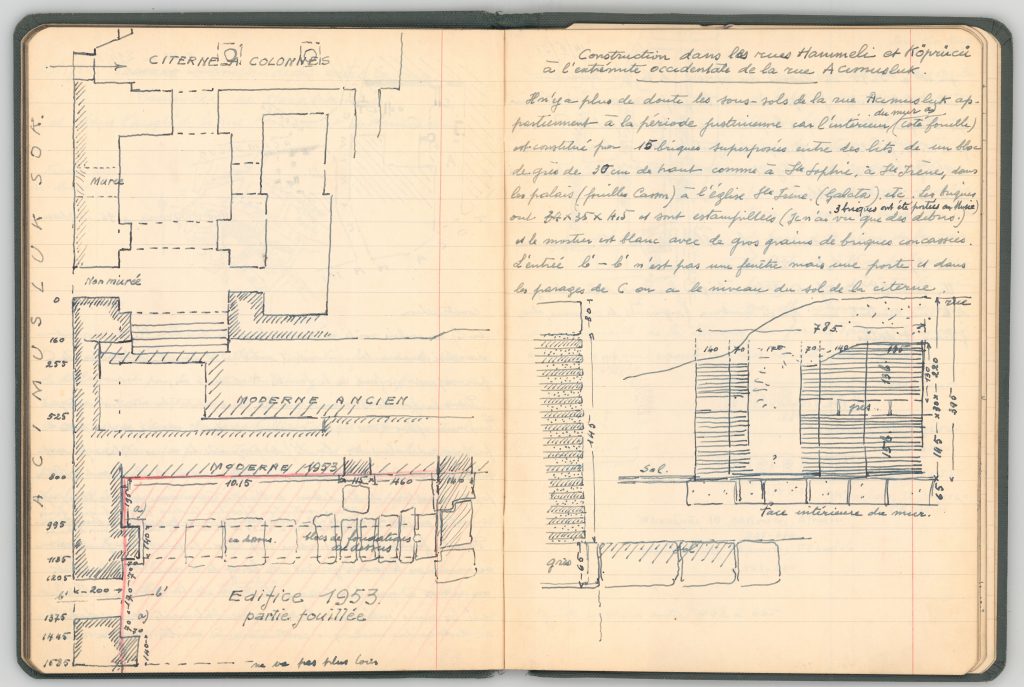 CITERNE À COLONNES
Murée
Non murée
ACIMUSLUK SOK.
0
160
255
525
800
995
1135
1205
1375
1445
1585
MODERNE ANCIEN
MODERNE 1953
10.15
115
460
140
195
a
140
en dessous
blocs de fondations
au dessous
b'
200
b'
70
170
70
a)
70
140
Edifice 1953.
partie fouillée
ne va pas plus loin
Construction dans les rues Hammeli et Köprücü
à l'extrémité occidentale de la rue Acımusluk.
Il n'y a plus de doute les sous-sols de la rue Acımusluk ap-
partiennent à la période Justinienne car l'intérieur du mur a) (coté fouille)
est constitué par 15 briques superposées entre des lits de un bloc
de grès de 30 cm de haut comme à Ste Sophie, à Ste Irène, dans
les palais (fouilles Casson) à l'église Ste Irène (Galata) etc. les briques
3 briques ont été portées au Musée
ont 34 × 35 × 4.5 et sont estampillées (Je n'ai vu que des débris.)
et le mortier est blanc avec de gros grains de briques concassées.
L'entrée b' – b' n'est pas une fenêtre mais une porte et dans
les parages de C on a le niveau du sol de la citerne.
80
145
65
grès
sol
rue
785
140
70
170
70
140
195
136
130
220
grès
30
395
156
145
Sol.
?
65
face intérieure du mur.